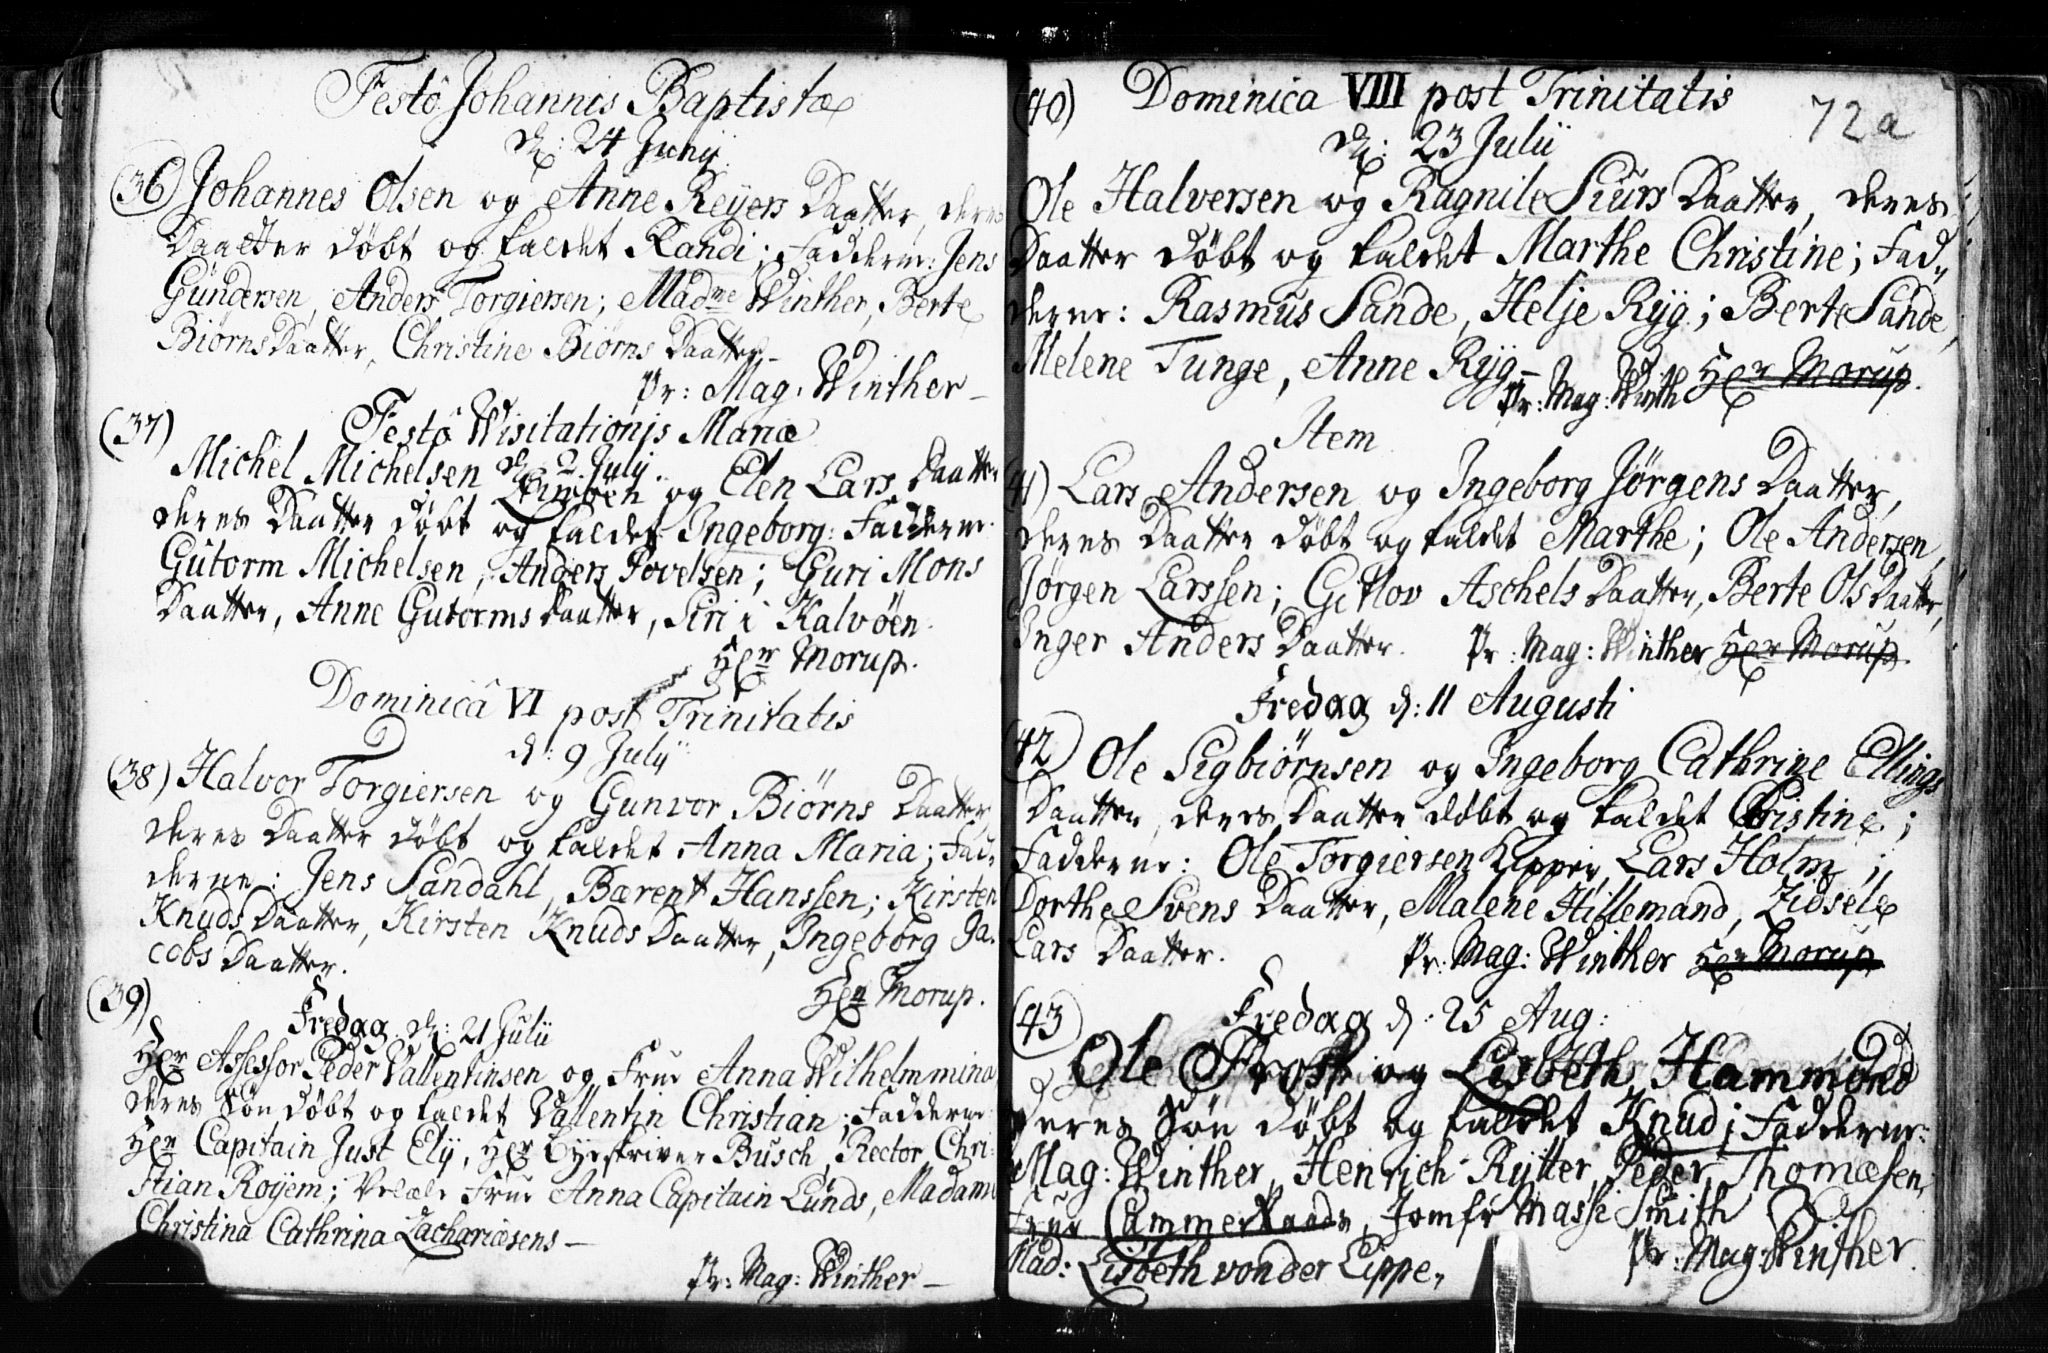 Festô Johannis Baptistæ
d: 24 Junij
(36) Johannes Olsen og Anne Reijers Daatter, deres
Daatter døbt og kaldet Randi; Fadderne: Jens
Gündersen, Anders Torgiersen; Madme Winther, Berte
Biörns Daatter, Christine Biörns Daatter –
Pr: Mag: Winther –
(37) Festô Wisitationis Mariæ
d 2 July
Michel Michelsen og Elen Lars Daatter
deres Daatter døbt og kaldet Ingeborg: Fadderne
Gütorm Michelsen, Anders Povelsen; Guri Mons
Daatter, Anne Gutorms Daatter, Siri i Kalvøen.
Her Morup.
Dominicâ VI post Trinitatis
d: 9 July
(38) Halvor Torgiersen og Gunvor Biörns Daatter
deres Daatter døbt og kaldet Anna Maria; Fad-
derne: Jens Sandahl, Bærent Hanssen; Kirsten
Knuds Daatter, Kirsten Knuds Daatter, Ingeborg Ja-
cobs Daatter.
Her Morup.
(39)
Fredag d: 21 Julii
Her Assessor Peder Vallentinsen og Frue Anna Wilhelmmina
deres Søn døbt og kaldet Vallentin Christian; Fadderne
Her Capitain Just Ely, Her Byeskriver Büsch, Rector Chri-
stian Royem; Frue Anna Capitain Lünds, Madame
Christina Cathrina Zachariæsens –
Pr: Mag: Winther –
(40) Dominica VIII post Trinitatis
72a
d: 23 Julii
Ole Halversen og Ragnile Siürs Daatter, deres
Daatter døbt og kaldet Marthe Christine; Fad-
derne: Rasmus Sande, Helje Ryg; Berte Sande,
Melene Tunge, Anne Ryg –
Pr: Mag: Winth Her Morup.
Item
41) Lars Andersen og Ingeborg Jørgens Daatter,
deres Daatter døbt og kaldet Marthe; Ole Andersen,
Jørgen Larssen; Gitlov Aschels Daatter, Berte Ols Daatter,
Inger Anders Daatter. Pr: Mag: Winther Her Morup.
Fredag d: 11 Augusti
42 Ole Sigbiörnsen og Ingeborg Cathrine Ellings
Daatter, deres Daatter døbt og kaldet Christine;
Fadderne: Ole Torgiersen Kipper, Lars Holm;
Dorthe Svens Daatter, Malene Hillemand, Zidsele
Lars Daatter. Pr: Mag: Winther Her Morup
(43) Fredag d: 25 Aug:
Ole Frost og Lisbeth Hammond
deres Søn døbt og kaldet Knud; Fadderne:
Mag: Winther, Henrich Rytter, Peder Thomæsen,
Frue Cammerraads, Jomfr Massi Smith
Mad: Lisbeth von der Lippe,
Pr: Mag Winther.